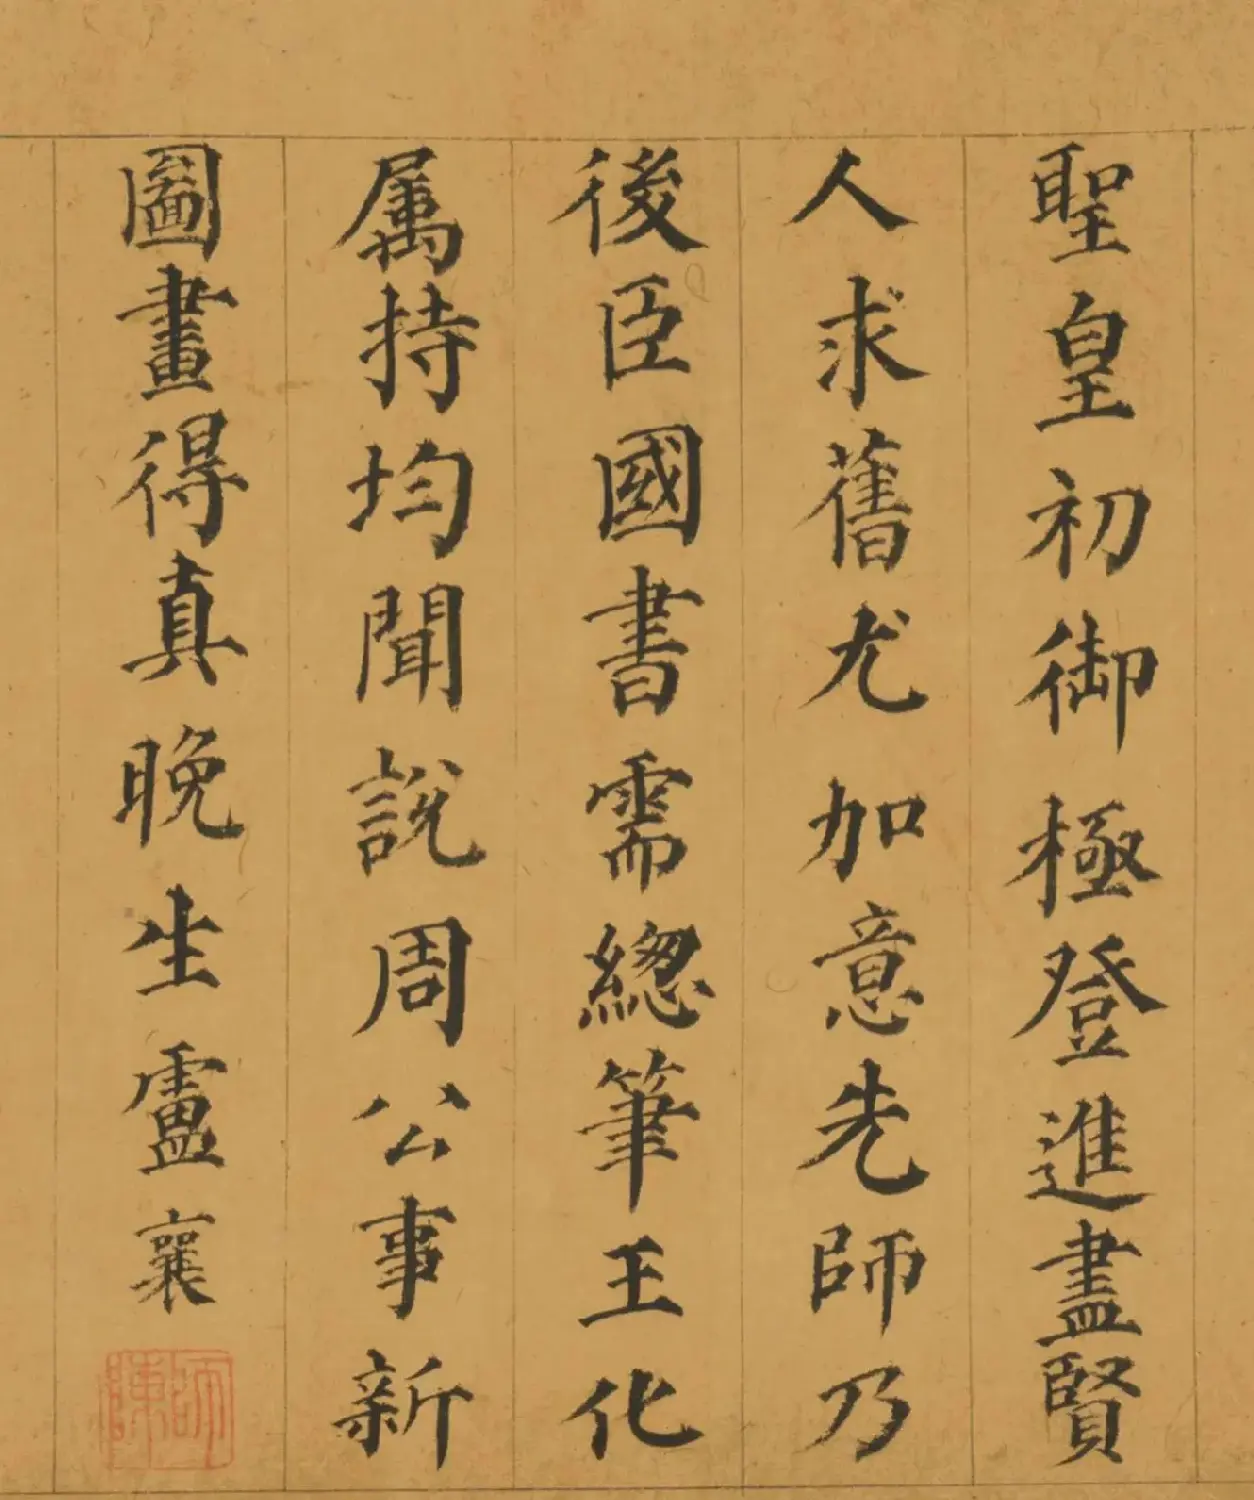 聖皇初御極登進盡賢
人求舊尤加意先師乃
後臣國書需總筆王化
属持均聞説周公事新
圖畫得真晚生盧襄